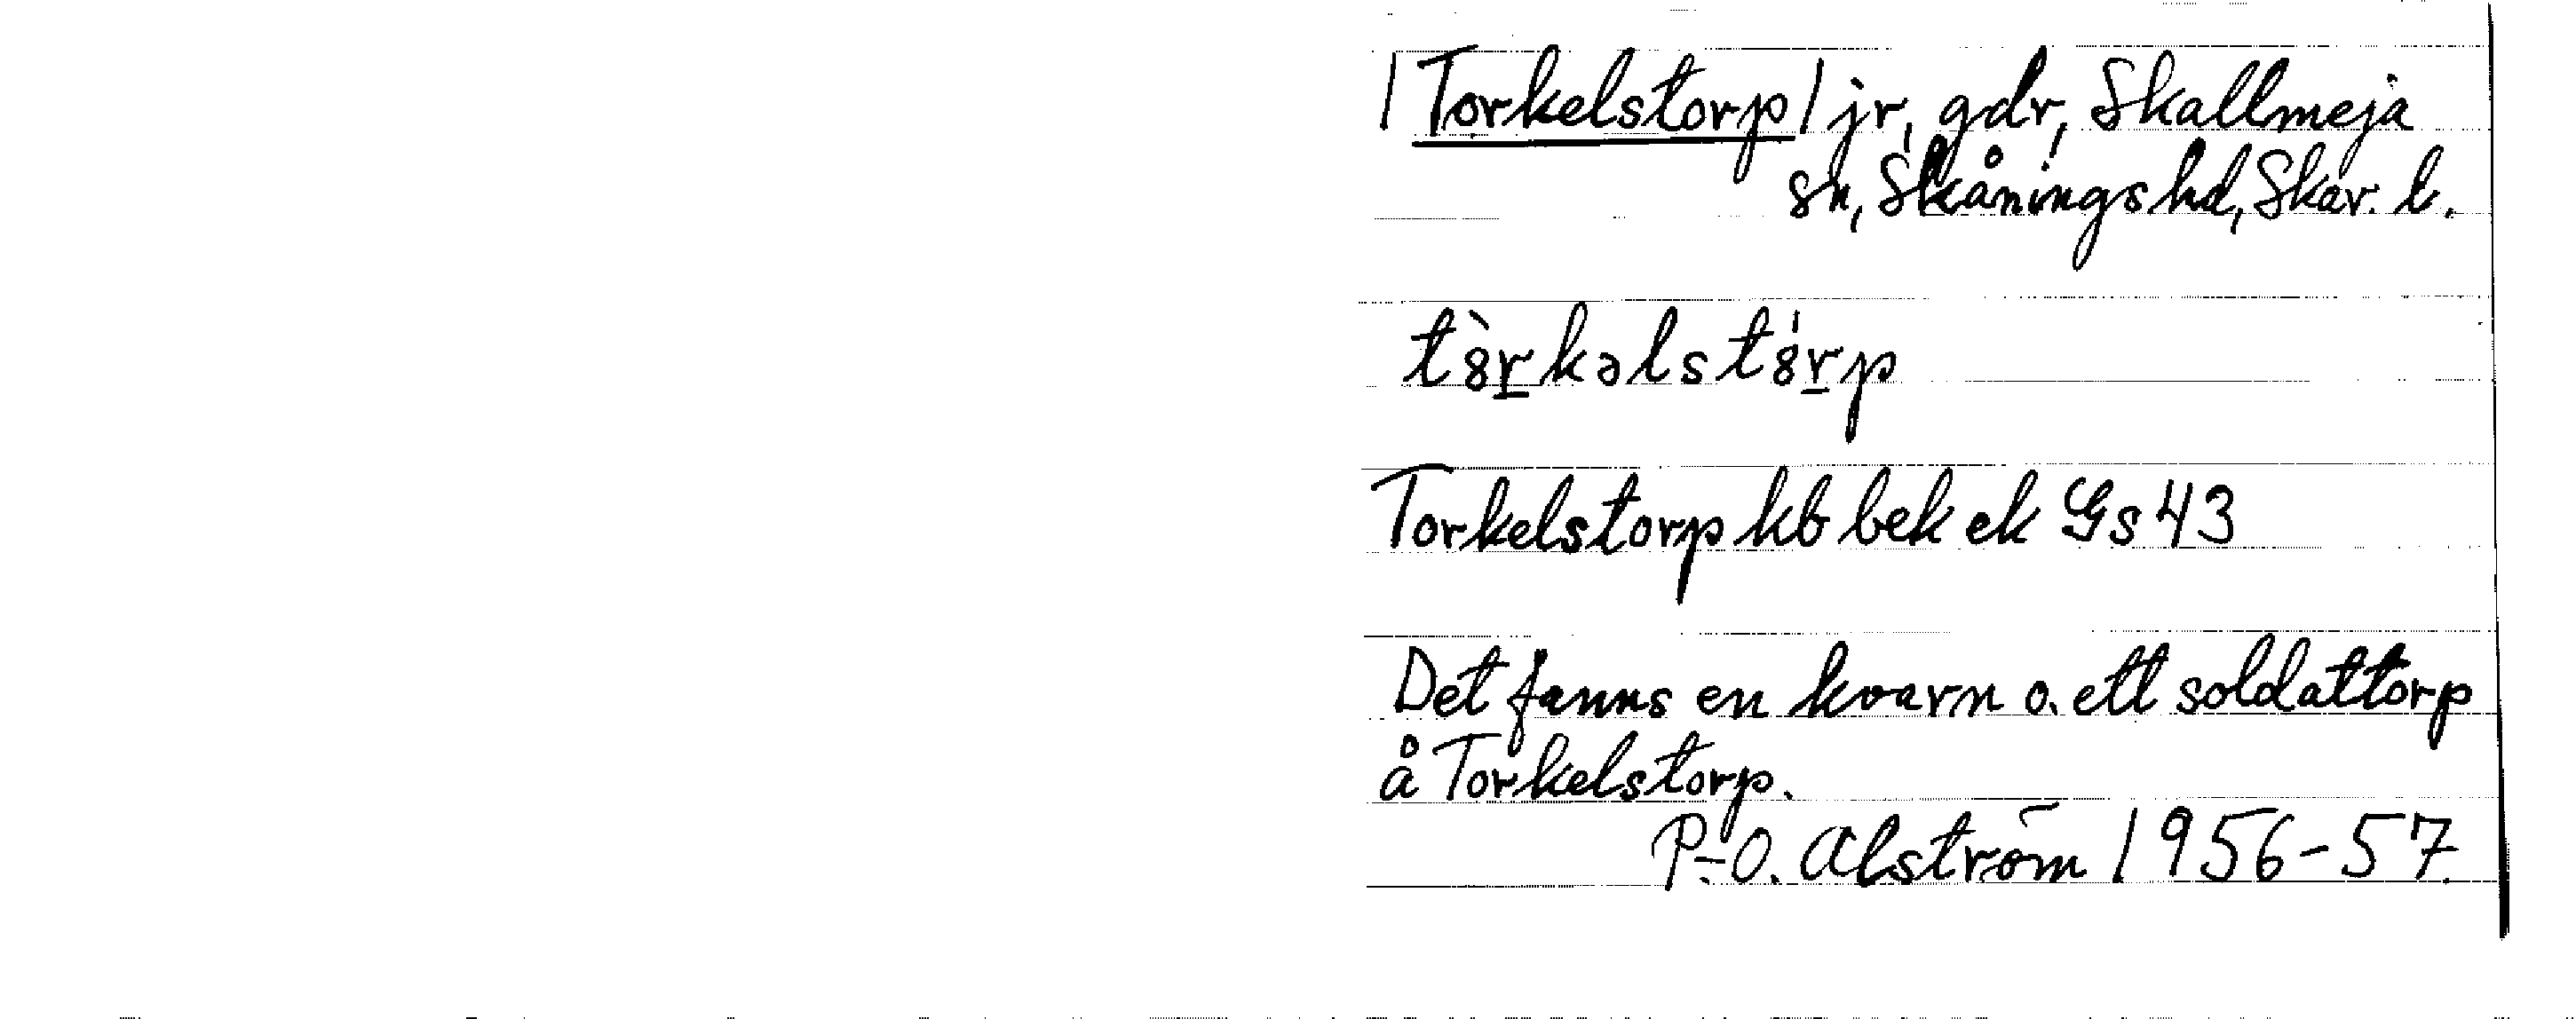 /Torkelstorp/ jr, gdr, Skallmeja
sn, Skånings hd, Skar. l.
tȣ̀r̲kəlstȣ́r̲p
Torkelstorp kb bek ek Gs 43
Det fanns en kvarn o. ett soldattorp
å Torkelstorp.
P.-O. Alström 1956-57.